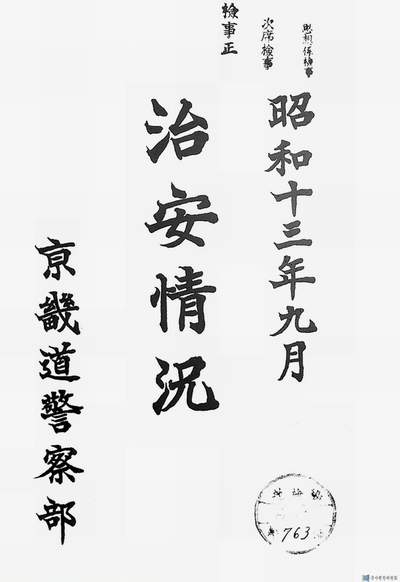 思想係検事
次席検事
検事正
昭和十三年九月
治安情況
京畿道警察部
763